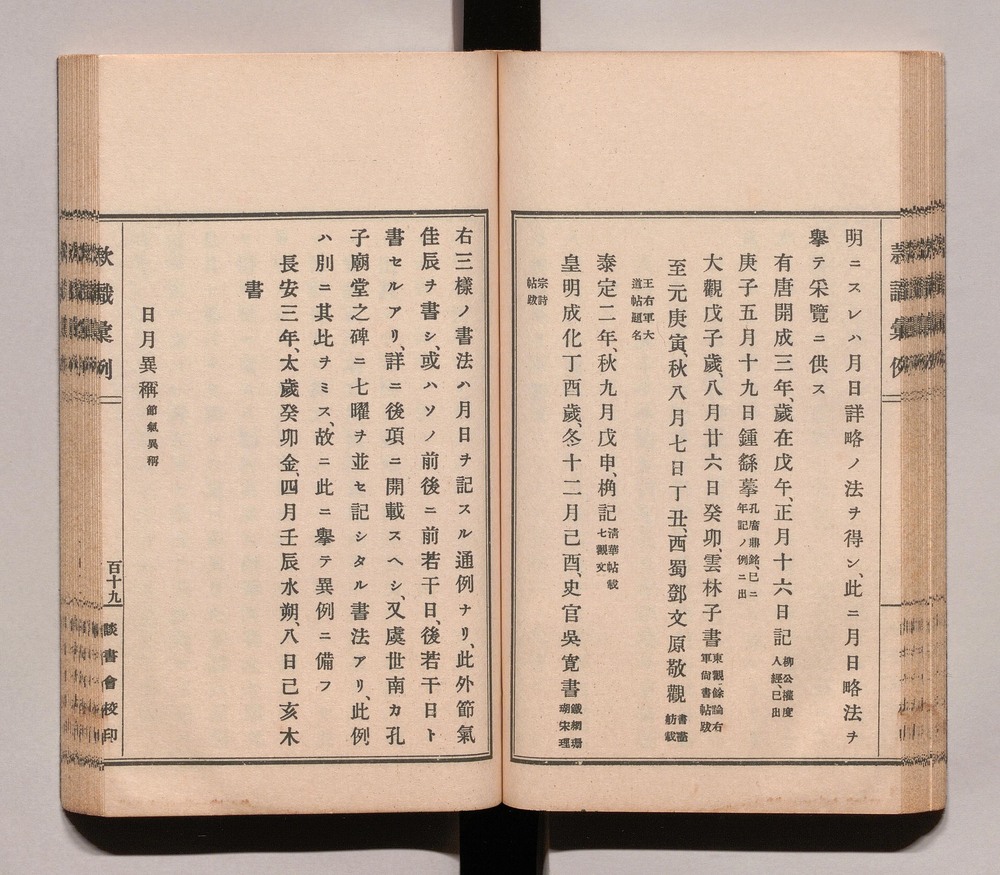 明ニスレハ月日詳略ノ法ヲ得ン、此ニ月日略法ヲ
擧テ采覽ニ供ス
有唐開成三年、歲在戊午、正月十六日記 柳公權度人經、已出
庚子五月十九日鍾繇摹 孔廟鼎銘、已ニ年記ノ例ニ出
大觀戊子歲、八月廿六日癸卯、雲林子書 東觀餘論右軍尙書帖跋
至元庚寅、秋八月七日丁丑、西蜀鄧文原敬觀 書畫舫載王右軍大道帖題名
泰定二年、秋九月戊申、桷記 淸華帖載七觀文
皇明成化丁酉歲、冬十二月己酉、史官吳寬書 鐵網珊瑚宋理宗詩帖跋
右三樣ノ書法ハ月日ヲ記スル通例ナリ、此外節氣
佳辰ヲ書シ、或ハソノ前後ニ前若干日、後若干日ト
書セルアリ、詳ニ後項ニ開載スヘシ、又虞世南カ孔
子廟堂之碑ニ七曜ヲ並セ記シタル書法アリ、此例
ハ別ニ其比ヲミス、故ニ此ニ擧テ異例ニ備フ
長安三年、太歲癸卯金、四月壬辰水朔、八日己亥木
書
日月異稱 節氣異稱
款識彙例
百十九
談書會校印